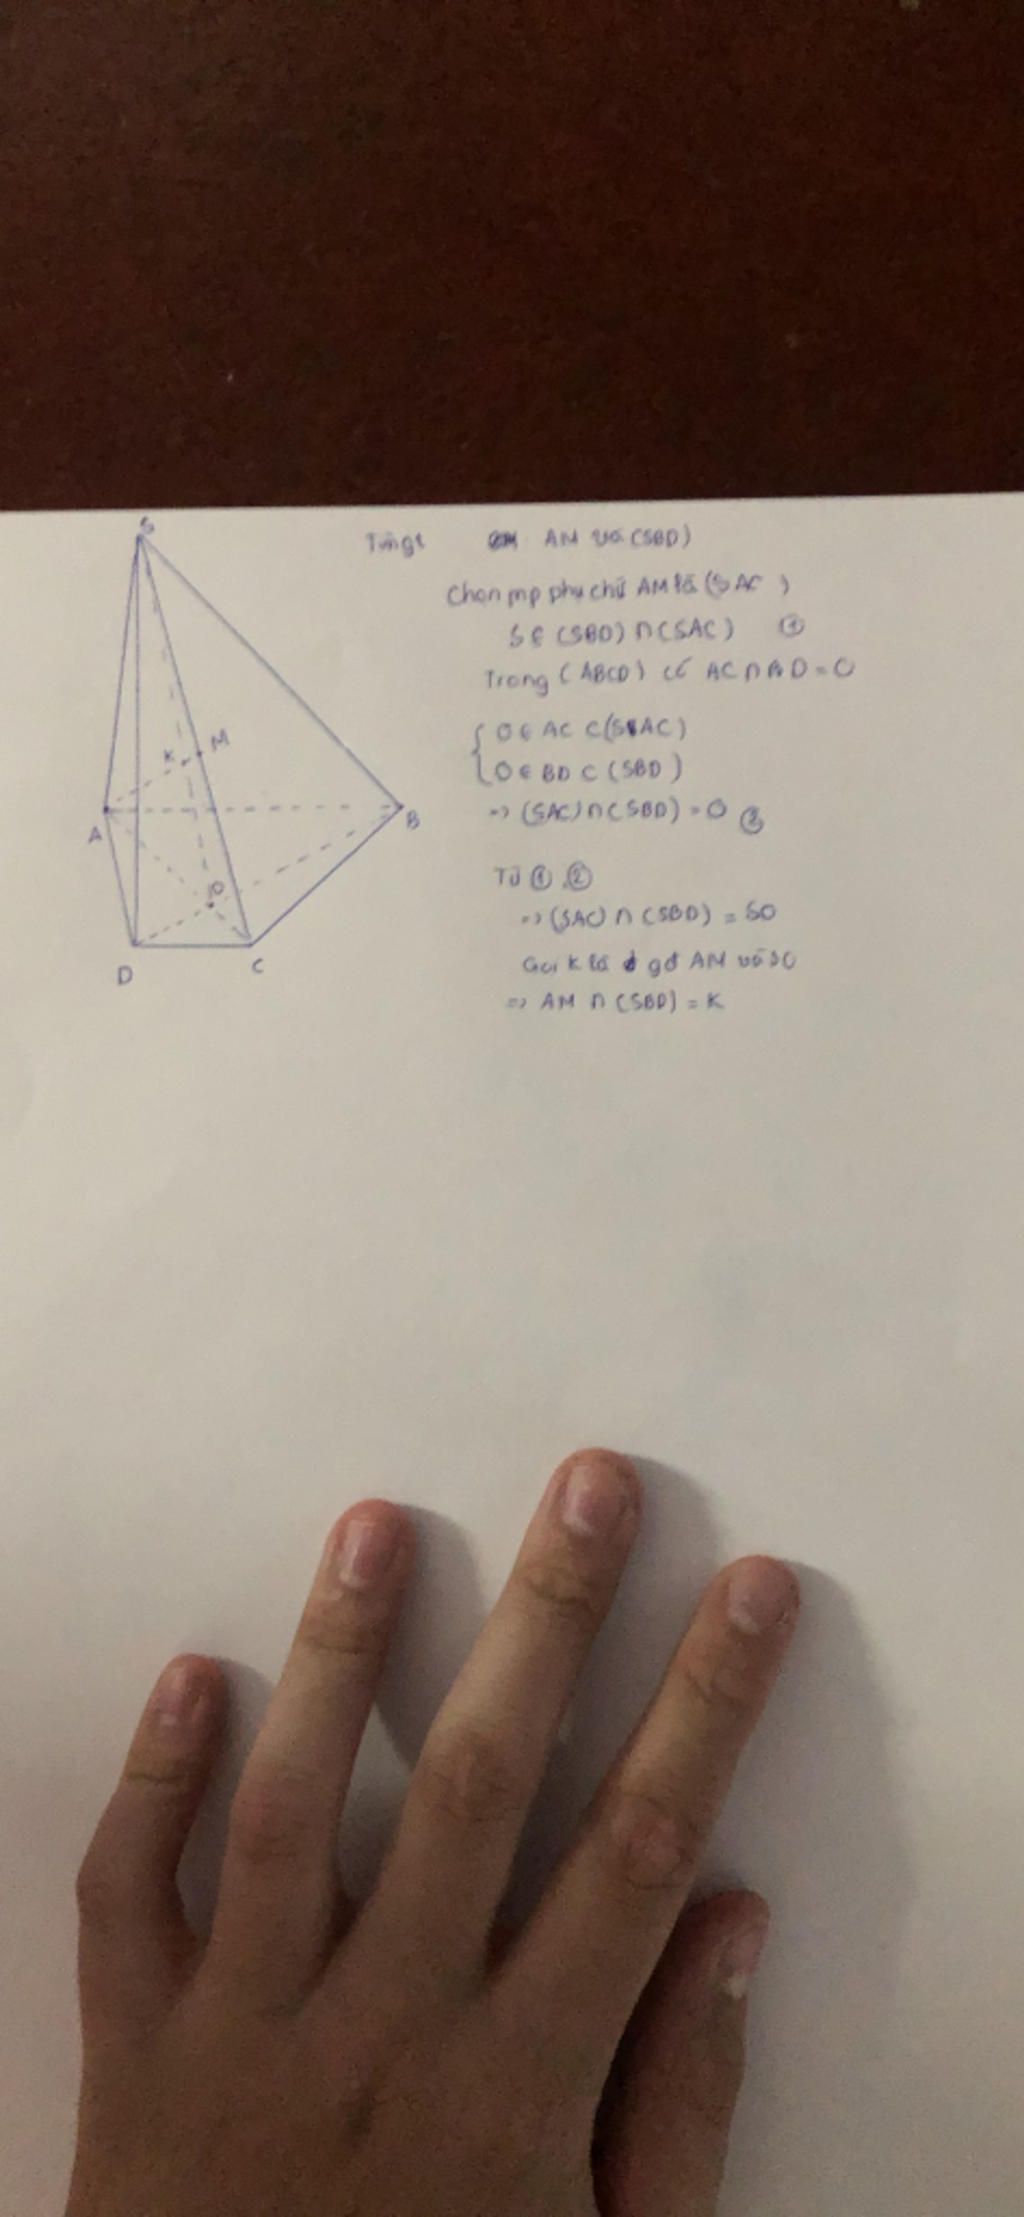 S
K
M
A
B
O
D
C
Tìm gt AM và (SBD)
Chọn mp phụ chứ AM là (SAC)
S ∈ (SBD) ∩ (SAC) ①
Trong (ABCD) có AC ∩ BD = O
{ O ∈ AC ⊂ (SAC)
O ∈ BD ⊂ (SBD)
=> (SAC) ∩ (SBD) = O ②
Từ ①, ②
=> (SAC) ∩ (SBD) = SO
Gọi K là gđ AM và SO
=> AM ∩ (SBD) = K